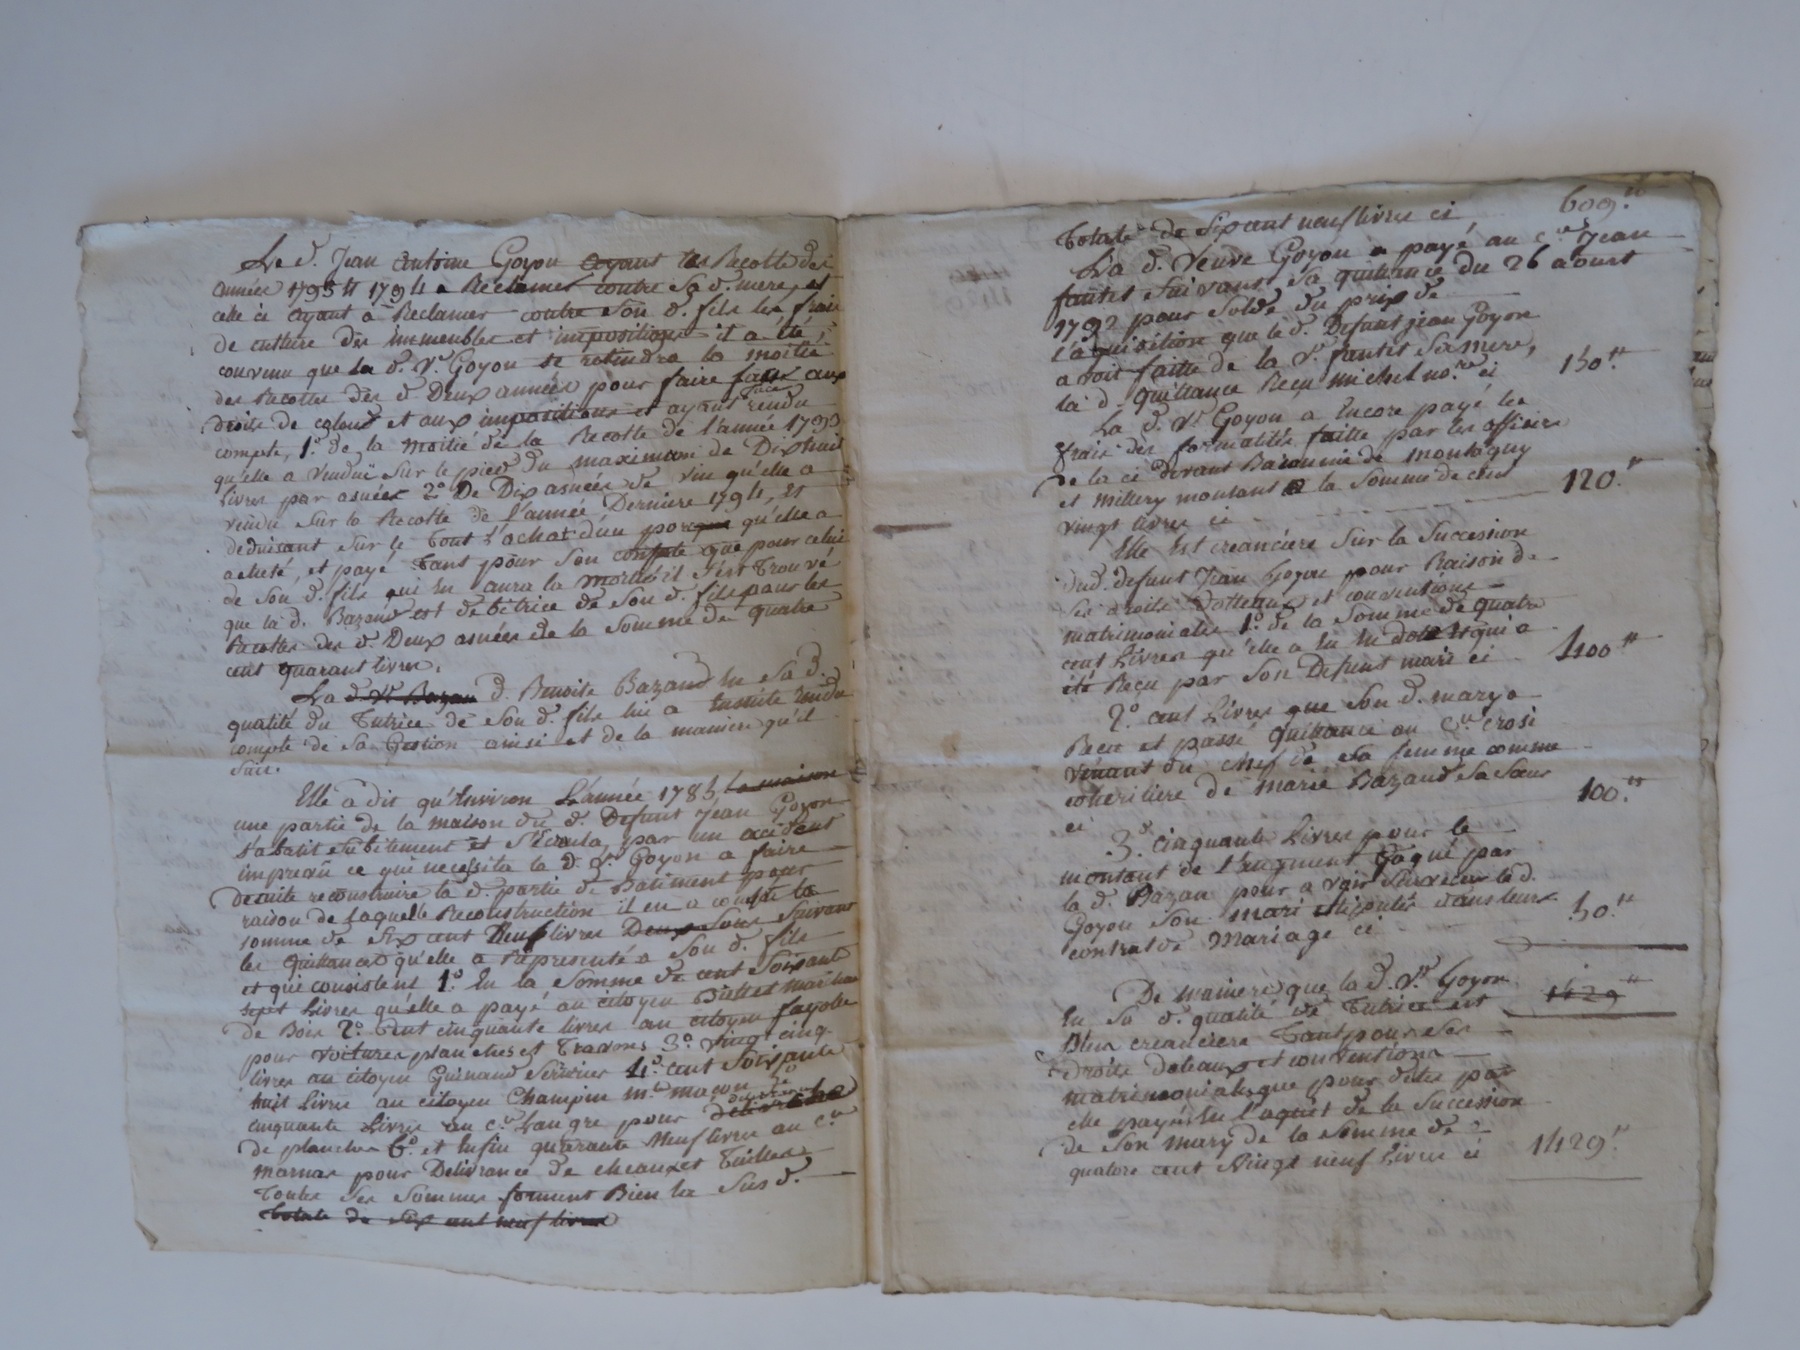 Le d. Jean antoine Goyon ayant les Recolte des
année 1793 & 1794 a Reclamer contre Sa d. mere, et
celle ci ayant a Reclamer contre Son d. fils les frais
de culture des immeubles et impositions il a été
convenu que la d. Ve Goyon se retiendra la moitié
des Recoltes des d. Deux années pour faire face aux
Droits de colons et aux impositions et ayant rendu
compte, 1o. de la moitié de la Recolte de l'année 1793
qu'elle a vendue sur le pied du maximum de Dixhuit
livres par asnées 2o De Dix asnées de vin qu'elle a
vendu sur la Recolte de l'année Derniere 1794, et
deduisant sur le tout l'achat d'un porc qu'elle a
acheté, et payé tant pour Son compte que pour celui
de Son d. fils qui en aura la moitié il s'est trouvé
que la d. Bazand est debitrice de Son d. fils pour les
Recoltes des d. Deux asnées de la Somme de quatre
cent quarant livres.
La d. Ve Bazan d. Benoite Bazand en Sa d.
qualité du Tutrice de Son d. fils lui a ensuite rendu
compte de Sa Gestion ainsi et de la maniere qu'il
suit.
Elle a dit qu'environ L'année 1785 la maison
une partie de la maison du d. Defunt Jean Goyon
s'abatit subitement et S'Ecroula, par un accident
imprevu ce qui necessita la d. Ve Goyon a faire
de suite reconstruire la d. partie de Batiment pour
raison de laquelle Reconstruction il en a couté la
somme de Six cent Neuf livres Deux Sous Suivant
les quittances qu'elle a Representé a Son d. fils
et qui consistent 1o. En la Somme de cent Soixante
sept Livres qu'elle a payé au citoyen marchand
de Bois 2o. Cent cinquante livres au citoyen fayolle
pour voitures planches et Travons 3o. vingt cinq
livres au citoyen Guinand Serrurier 4o. cent Soixante
huit Livres au citoyen Champin md. maçon 5o
cinquante Livres au c.en Langre pour delivrance
de planches 6o. et enfin quarante Neuf livres au c.en
marnas pour Delivrance de cheaux et Tuilles
Toutes Ses Sommes forment Bien la Sus d.
totale de Six cent neuf livres
Totale de Six cent neuf livres ci 609.tt
La d. Veuve Goyon a payé au c.en Jean
fantet suivant sa quittance du 26 aoust
1792 pour Solde du prix de
l'aquisition que le d. Defunt jean Goyon
avoit faitte de la Ve. fantet Sa mere,
la d. quittance Reçu michel no.re ci 150.tt
La d. Ve Goyon a Encore payé les
frais des formalités faitte par les officiers
de la ci devant Baronnie de montagny
et millery montant a la somme de cent
vingt livres ci 120.tt
Elle Est creanciere Sur la Succession
dud. defunt Jean Goyon pour Raison de
Ses droits Dotteaux et conventions
matrimoniales 1o. de la Somme de quatre
cent Livres qu'elle a Eu En dot Et qui a
été Reçu par Son Defunt mari ci 400tt
2o. cent Livres que Son d. mary a
Reçu et passé quittance au c.en crosi
venant du chef de sa femme comme
coheritiere de marie Bazand Sa Sœur
ci 100.tt
3o. cinquante Livres pour le
montant de l'augment Gagné par
la d. Bazan pour avoir Survecu le d.
Goyon Son mari stipulé dans leurs
contrat de Mariage ci 50.tt
De maniere que la d. Ve Goyon 1429tt
En Sa d. qualité de Tutrice est
Bien creanciere Tant pour Ses
droits doteaux et conventions
matrimoniales que pour dettes par
elle payés En l'aquet de la Succession
de Son mary de la Somme de
quatorze cent vingt neuf Livres ci 1429.tt